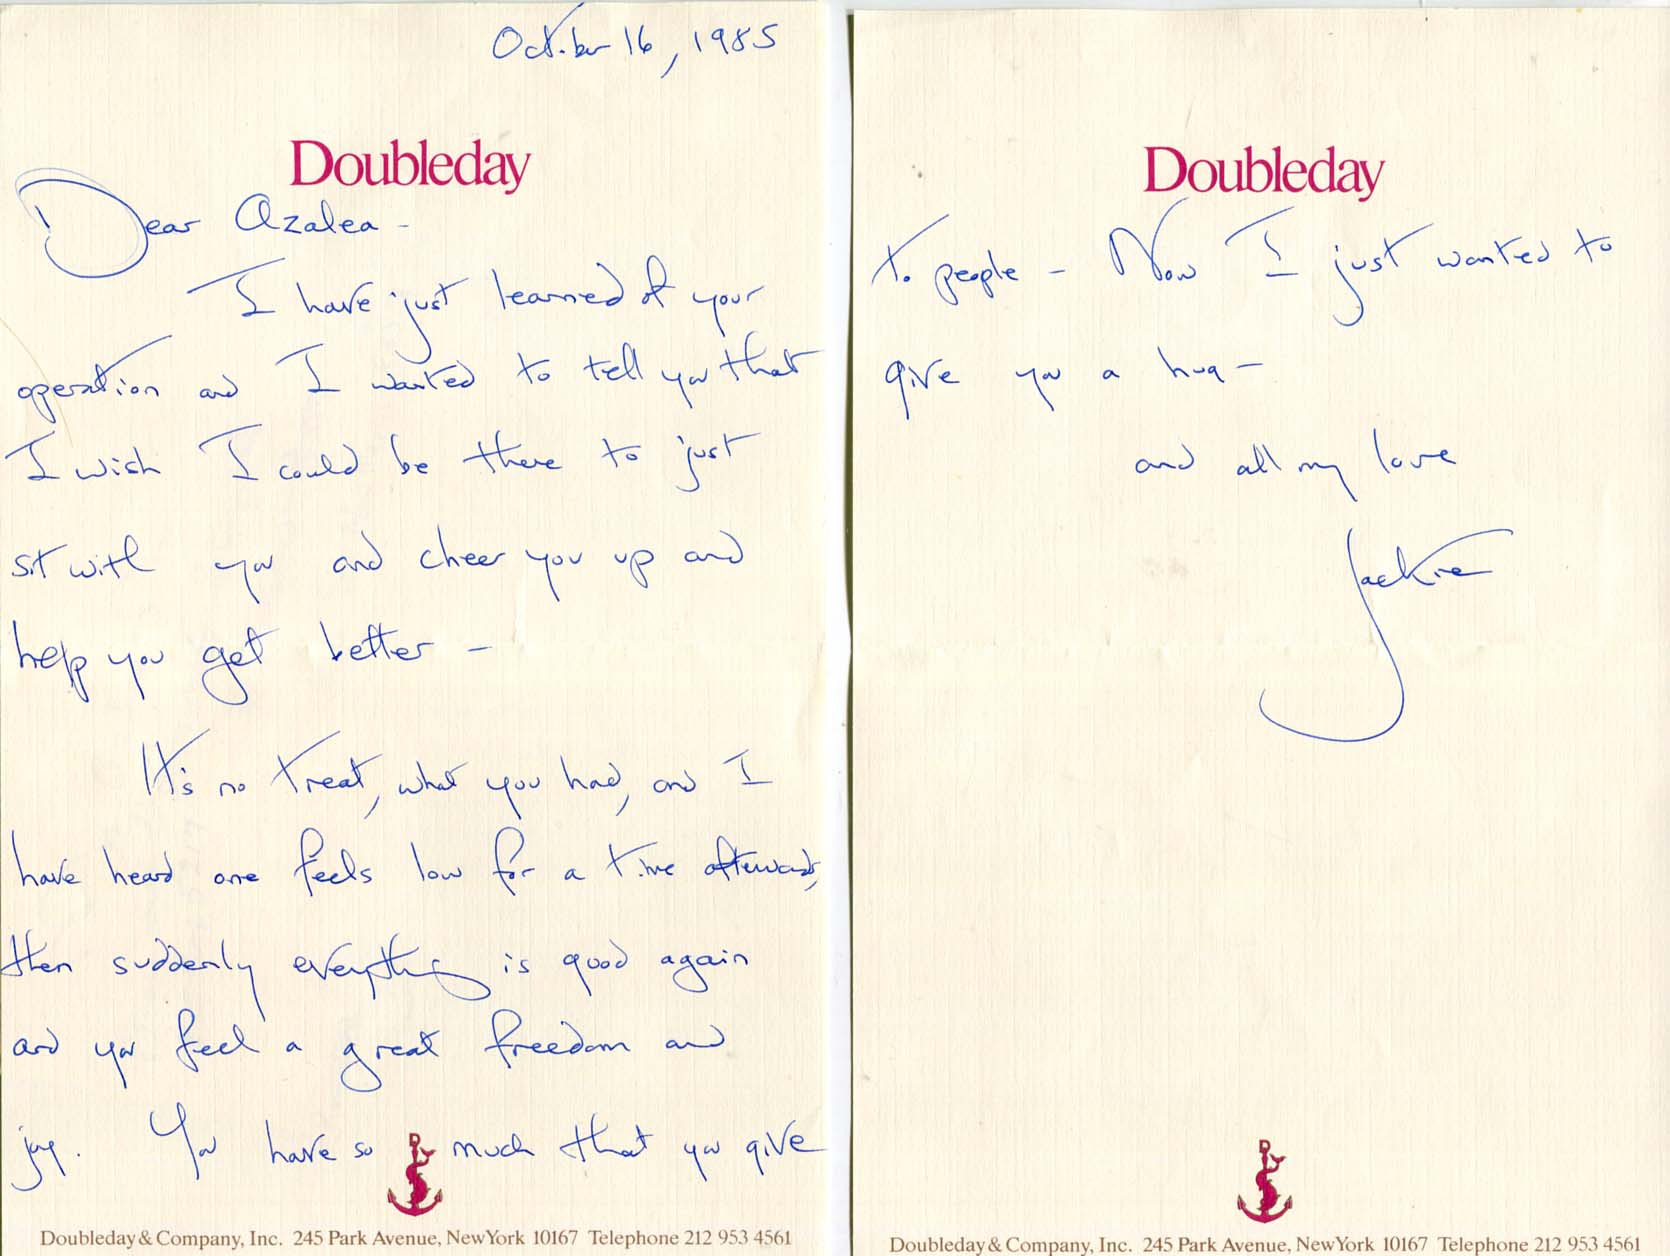 October 16, 1985
Doubleday
Dear Azalea -
I have just learned of your
operation and I wanted to tell you that
I wish I could be there to just
sit with you and cheer you up and
help you get better -
It's no treat, what you had, and I
have heard one feels low for a time afterwards,
then suddenly everything is good again
and you feel a great freedom and
joy. You have so much that you give
Doubleday & Company, Inc. 245 Park Avenue, New York 10167 Telephone 212 953 4561
Doubleday
to people - Now I just wanted to
give you a hug -
and all my love
Jackie
Doubleday & Company, Inc. 245 Park Avenue, New York 10167 Telephone 212 953 4561